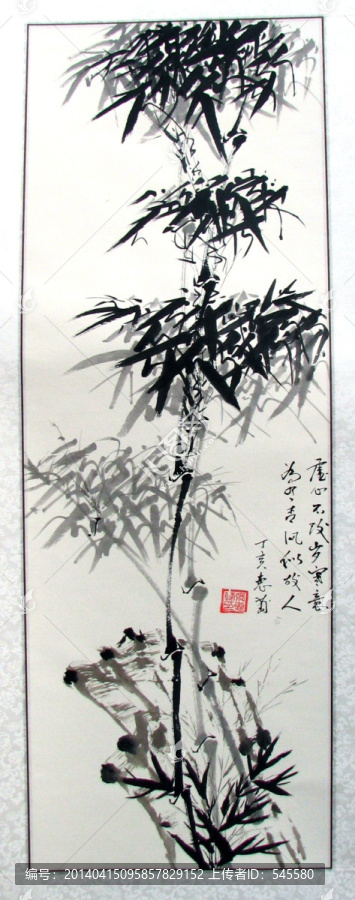 虚心不改岁寒意
为有清风似故人
丁亥惠蘭
编号：20140415095857829152 上传者ID：545580